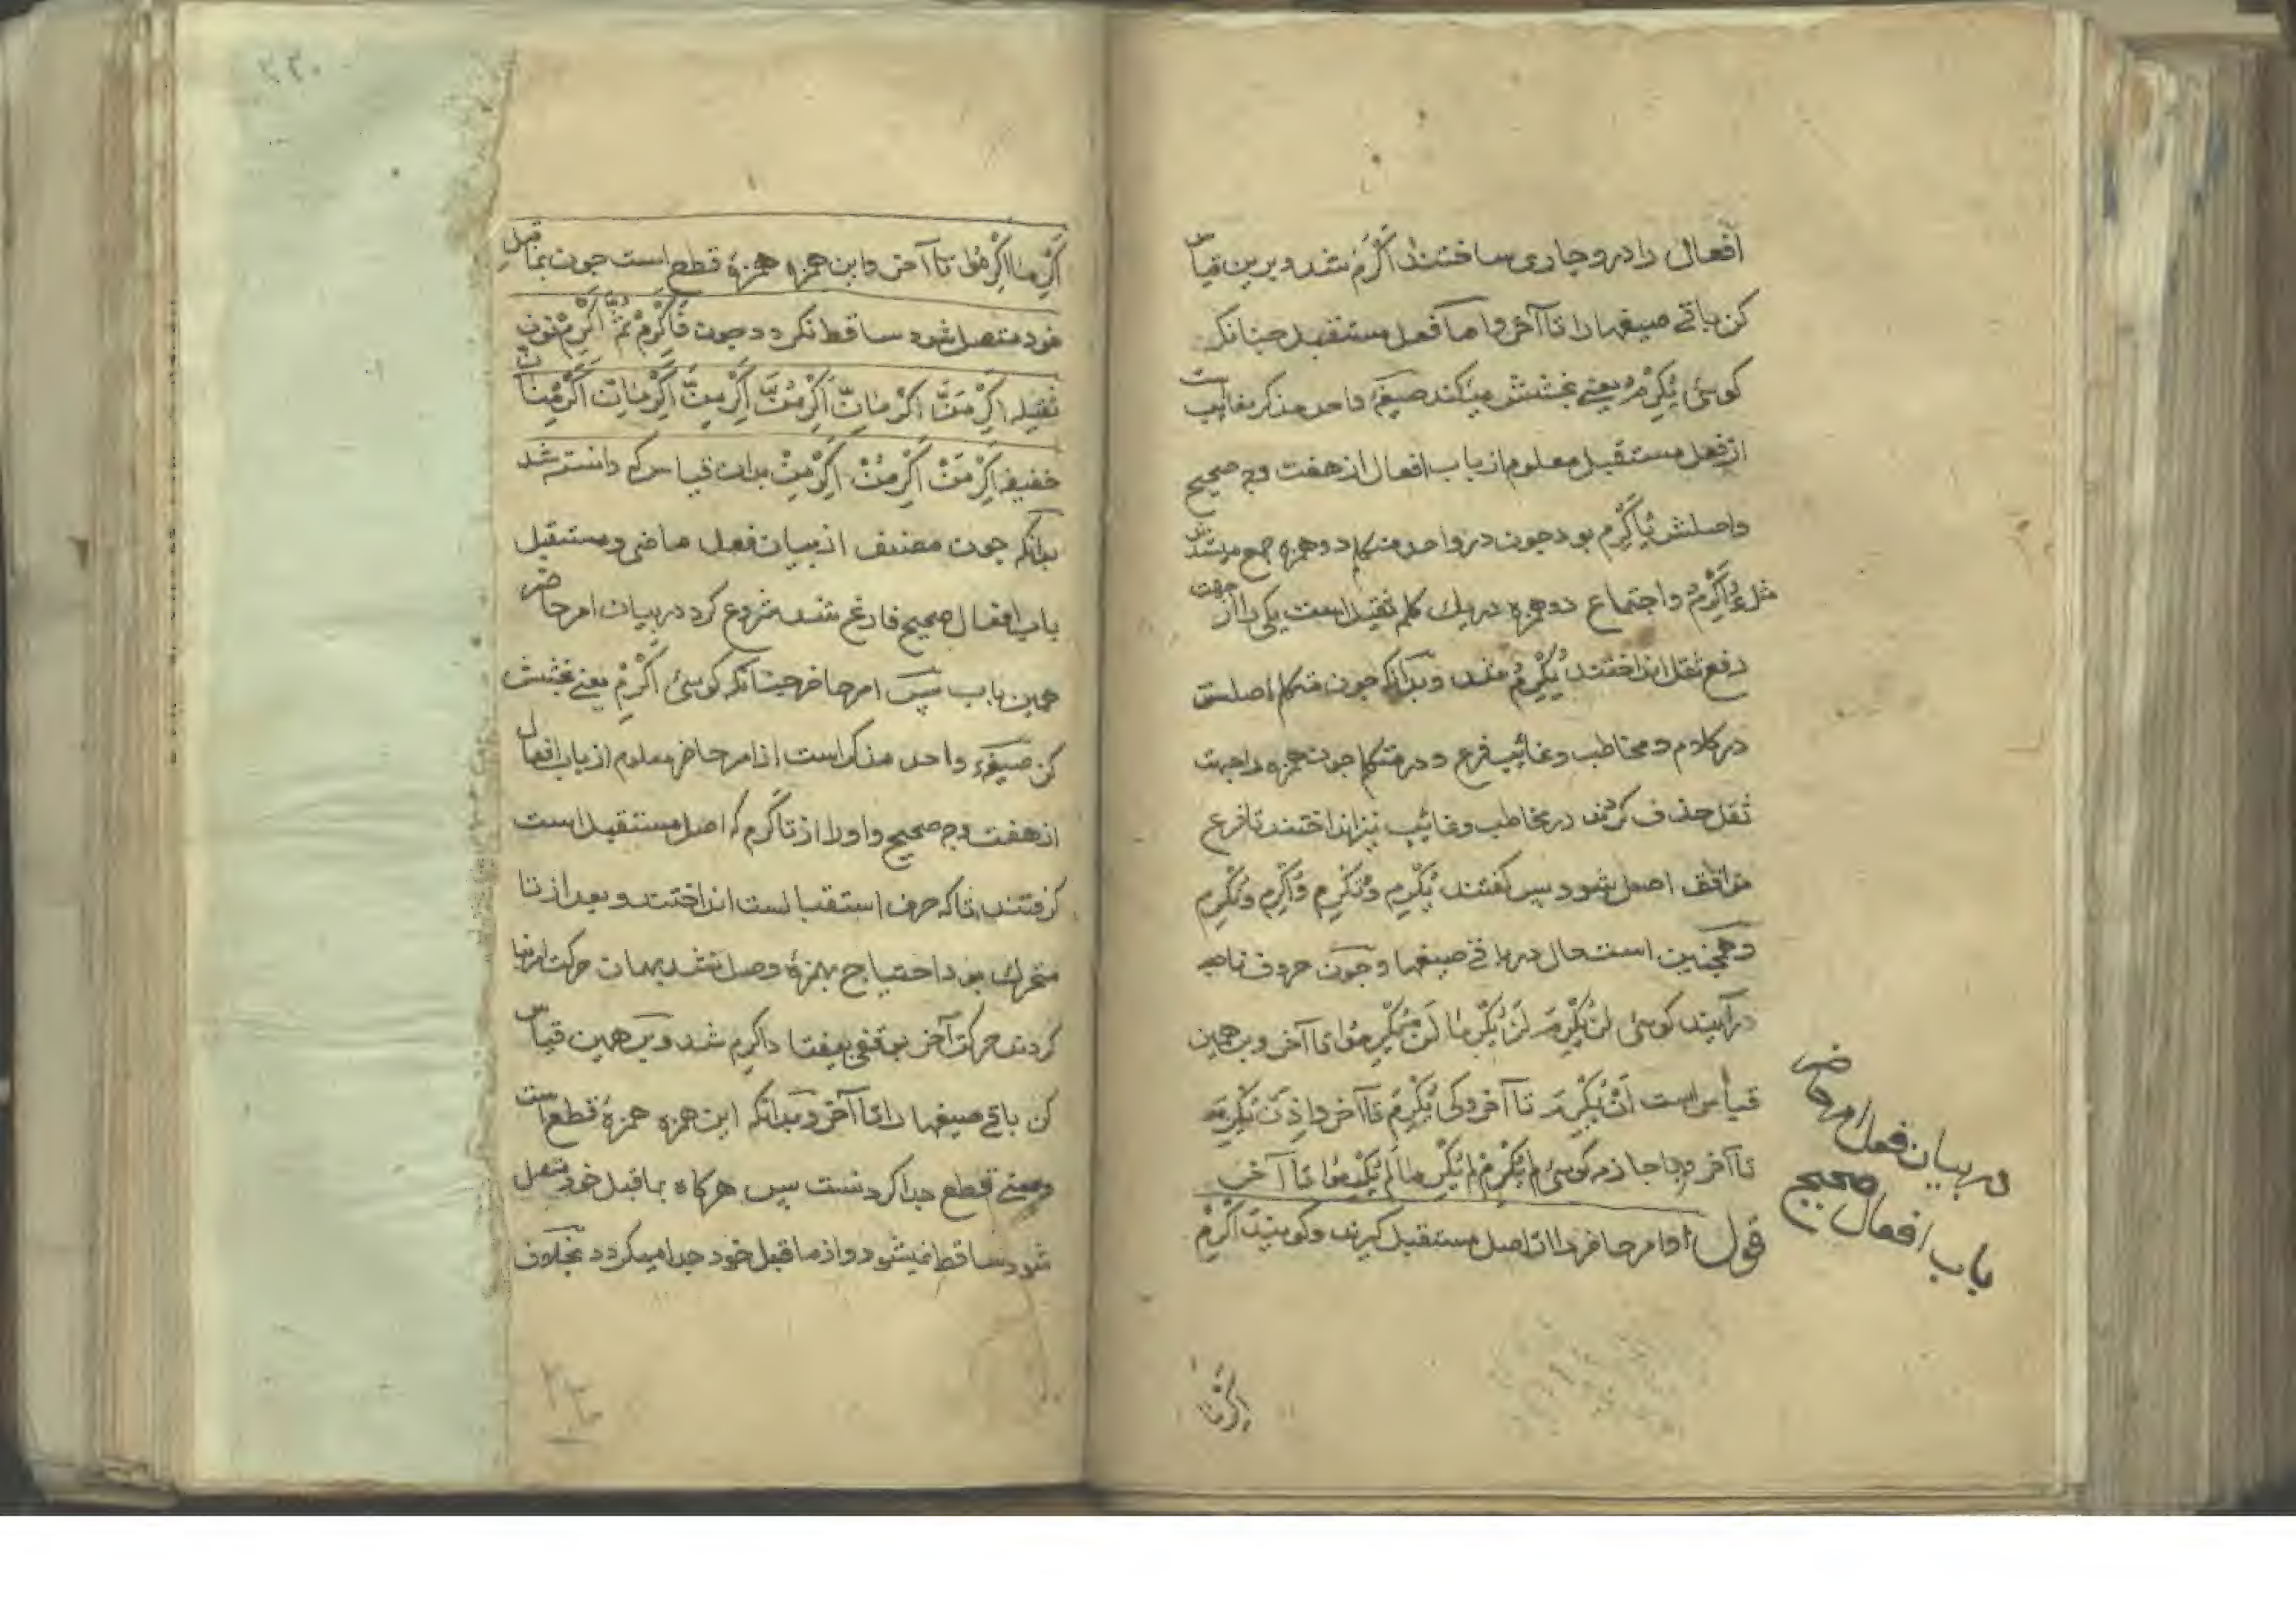 افعال را درو جاری ساختند اَكْرَمَ شد و برین قیاس
کن باقے صیغها را تا آخر و اما فعل مستقبل چنانکه
گوئی یُکْرِمُ یعنے بخشش میکند صیغهٔ واحد مذکر غایب است
از فعل مستقبل معلوم از باب افعال از هفت وجه صحیح
واصلش یُاَکْرِمُ بود چون در واحد متکلم دو همزه جمع میشدند
مثل ءُاَکْرِمُ و اجتماع دو همزه در یک کلمه ثقیل است یکی را از جهت
دفع ثقل انداختند یُکْرِمُ شد و بدانکه چون متکلم اصلست
در کلام و مخاطب و غائب فرع و در متکلم چون همزه را جهت
ثقل حذف کردند در مخاطب و غائب نیز انداختند تا فرع
موافق اصل شود پس گفتند یُکْرِم و تُکْرِم و اُکْرِم و نُکْرِم
و همچنین است حال در باقے صیغها و چون حروف ناصبه
در آیند گوئی لَنْ یُکْرِمَ لَنْ یُکْرِمَا لَنْ یُکْرِمُوا تا آخر و بر همین
قیاس است اَنْ یُکْرِمَ تا آخر و کی یُکْرِمَ تا آخر و اِذَنْ یُکْرِمَ
تا آخر و با جازمه گوئی لم یُکْرِمْ لم یُکْرِمَا لم یُکْرِمُوا تا آخر
قوله و امر حاضر را از اصل مستقبل گیرند و گویند اَکْرِمْ
در بیان فعل امر حاضر
باب افعال صحیح
اکرما
۲۲۰
اَکْرِمَا اَکْرِمُوا تا آخر و این همزه همزهٔ قطع است چون بما قبل
خود متصل شود ساقط نگردد چون فَاَکْرِمْ ثُمَّ اَکْرِمْ نون
ثقیله اَکْرِمَنَّ اَکْرِمَانِّ اَکْرِمُنَّ اَکْرِمِنَّ اَکْرِمَانِّ اَکْرِمْنَانِّ
خفیفه اَکْرِمَنْ اَکْرِمُنْ اَکْرِمِنْ بدان قیاس که دانسته شد
بدانکه چون مصنف از بیان فعل ماضی و مستقبل
باب افعال صحیح فارغ شد شروع کرد در بیان امر حاضر
همین باب پس امر حاضر چنانکه گوئی اَکْرِمْ یعنے بخشش
کن صیغهٔ واحد مذکر است از امر حاضر معلوم از باب افعال
از هفت وجه صحیح و او را از تاکرم که اصل مستقبل است
گرفتند تا که حرف استقبالست انداختند و بعد از تا
متحرک بود احتیاج بهمزهٔ وصل نشد بهمان حرکت امر بنا
کردند حرکت آخر بوقفی بیفتاد اکرم شد و بر همین قیاس
کن باقے صیغها را تا آخر و بدانکه این همزه همزهٔ قطع است
و معنے قطع جدا کردنست پس هرگاه بما قبل خود متصل
شود ساقط نمیشود و از ما قبل خود جدا میگردد بخلاف